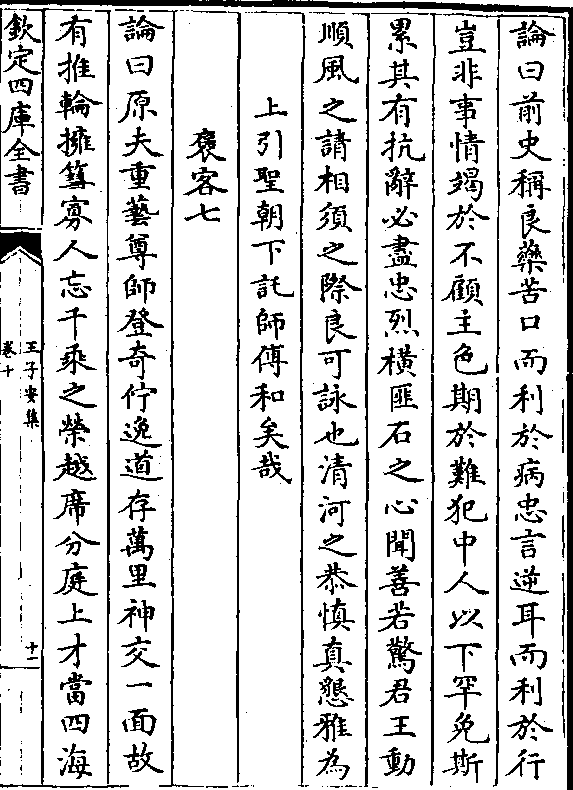 論曰前史稱良藥苦口而利於病忠言逆耳而利於行
豈非事情竭於不顧主色期於難犯中人以下罕免斯
累其有抗辭必盡忠烈橫匪石之心聞善若驚君王動
順風之請相須之際良可詠也清河之恭慎真懇雅為
上引聖朝下託師傅和矣哉
褒客七
論曰原夫重藝尊師登奇佇逸道存萬里神交一面故
有推輪擁篲寡人忘千乘之榮越席分庭上才當四海
欽定四庫全書
王子安集
卷十
十一